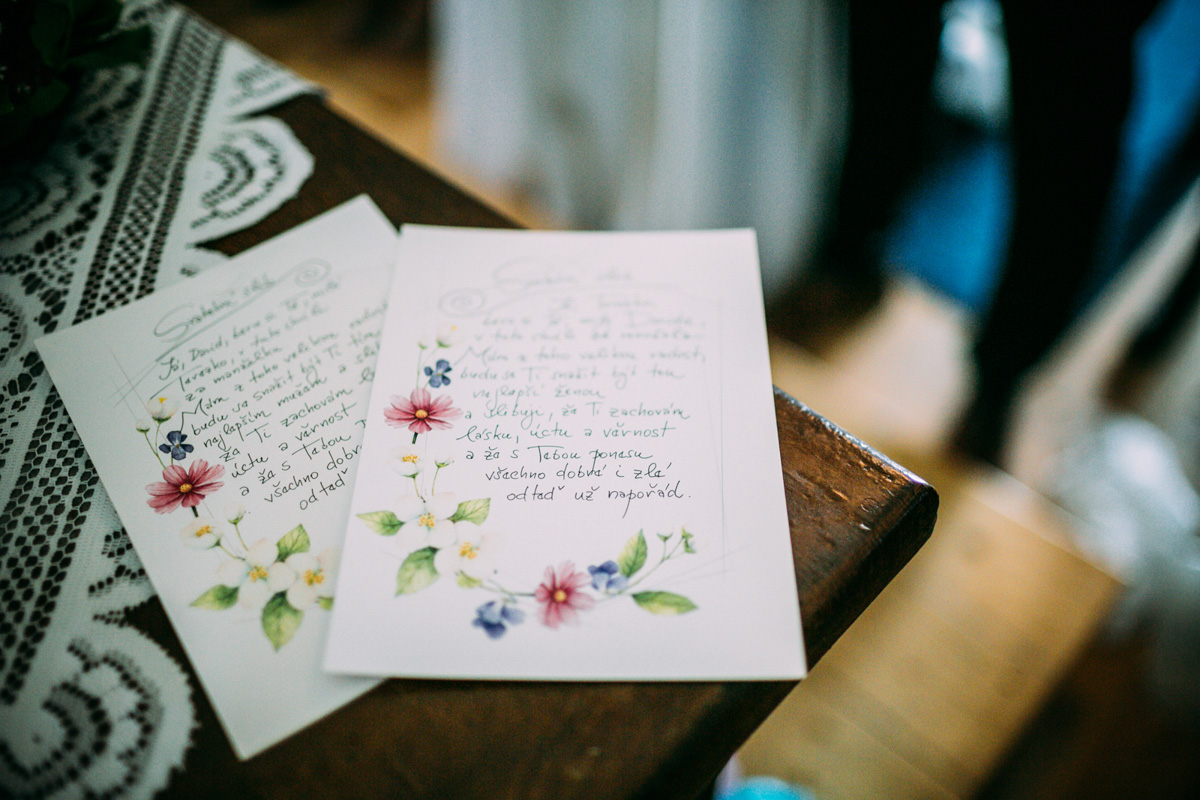 Svatební slib
Já, David, beru si Tě, moji
Terezko, v tuto chvíli
za manželku.
Mám z toho velikou radost
budu se snažit být Ti tím
nejlepším mužem a
že Ti zachovám
úctu a věrnost
a že s Tebou
všechno dobré
odteď
Svatební slib
Já Terezka
beru si Tě, můj Davide,
v tuto chvíli za manžela.
Mám z toho velikou radost,
budu se Ti snažit být tou
nejlepší ženou
a slibuji, že Ti zachovám
lásku, úctu a věrnost
a že s Tebou ponesu
všechno dobré i zlé
odteď už napořád.